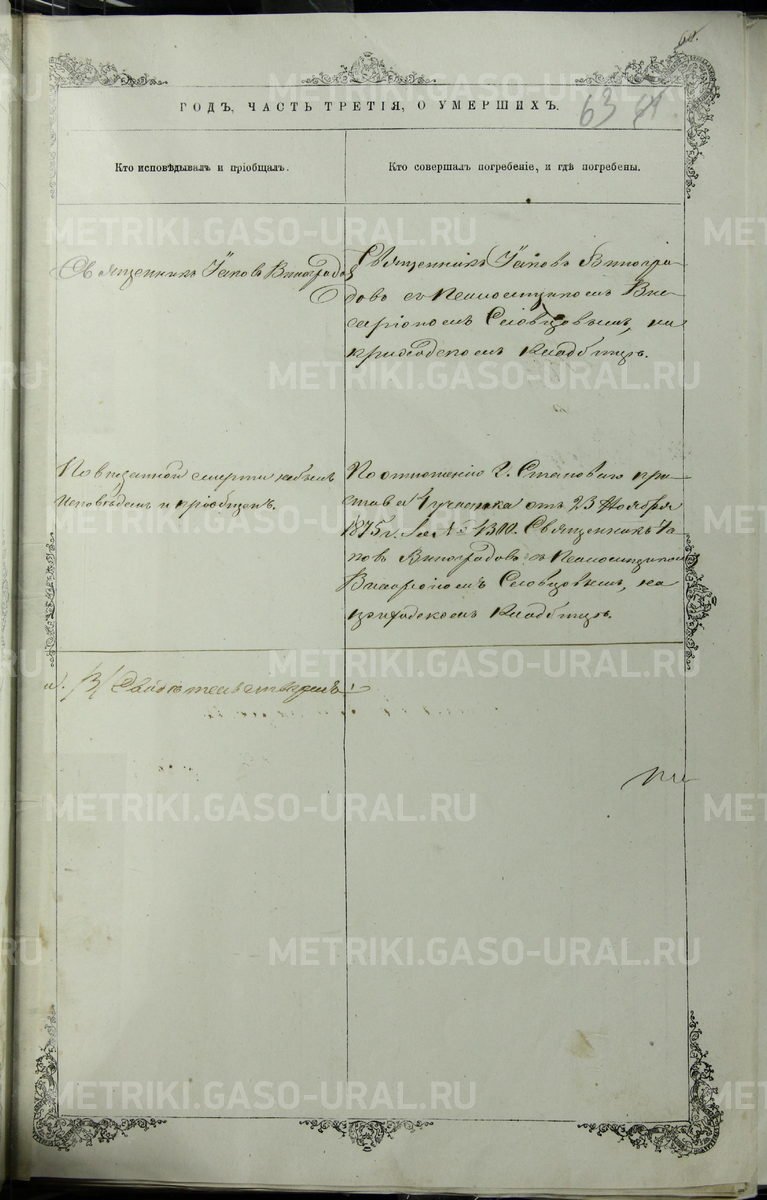 ГОДЪ, ЧАСТЬ ТРЕТІЯ, О УМЕРШИХЪ.
63
Кто исповѣдывалъ и пріобщалъ.
Кто совершалъ погребеніе, и гдѣ погребены.
Священникъ Іаковъ Виноградовъ
Священникъ Іаковъ Виногра-
довъ съ Псаломщикомъ Вис-
саріономъ Словцовымъ, на
приходскомъ кладбищѣ.
По внезапной смерти небылъ
исповѣданъ и пріобщенъ.
По отношенію Г. Становаго при-
става 4 участка отъ 23 Ноября
1875 г. за № 4300. Священникъ Іа-
ковъ Виноградовъ съ Псаломщикомъ
Виссаріономъ Словцовымъ, на
приходскомъ кладбищѣ.
METRIKI.GASO-URAL.RU